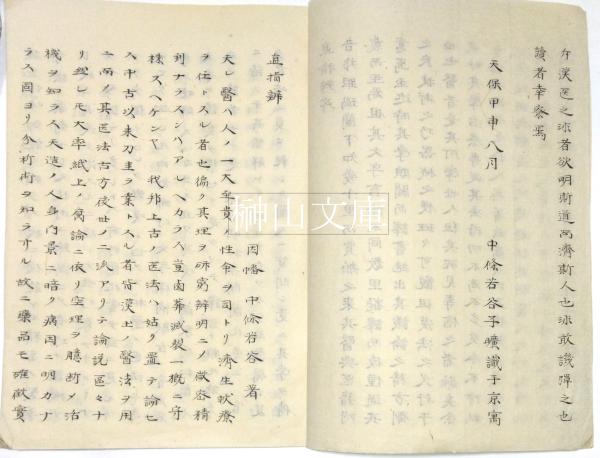 介漢医之沭者欲明斯道而濟斯人也沭敢譏彈之也
讀者幸察焉
天保甲申八月　中條若谷子曠識于京寓
直指辨
因幡　中條若谷　著
夫レ醫ハ人ノ一大至貴ノ性命ヲ司トリ濟生救療
ヲ任トスル者也偏ク其理ヲ研窮辨明ニノ微密精
到ナラスンハアルヘカラス豈鹵莽滅裂一概ニ守
株スヘケンヤ我邦上古ノ医法ハ姑ク置テ論セ
ス中古以来刀圭ヲ業トスル者皆漢土ノ醫法ヲ用
ユ而ノ其医法古方後世ノ二派アリテ論説區々ナ
リ總シテ大率紙上ノ腐論ニ依リ空理ヲ臆断メ治
機ヲ知ラス天造ノ人身内景ニ暗ク病因ニ明カナ
ラス固ヨリ分析術ヲ知ラサル故ニ藥品モ唯僉實
榊山文庫